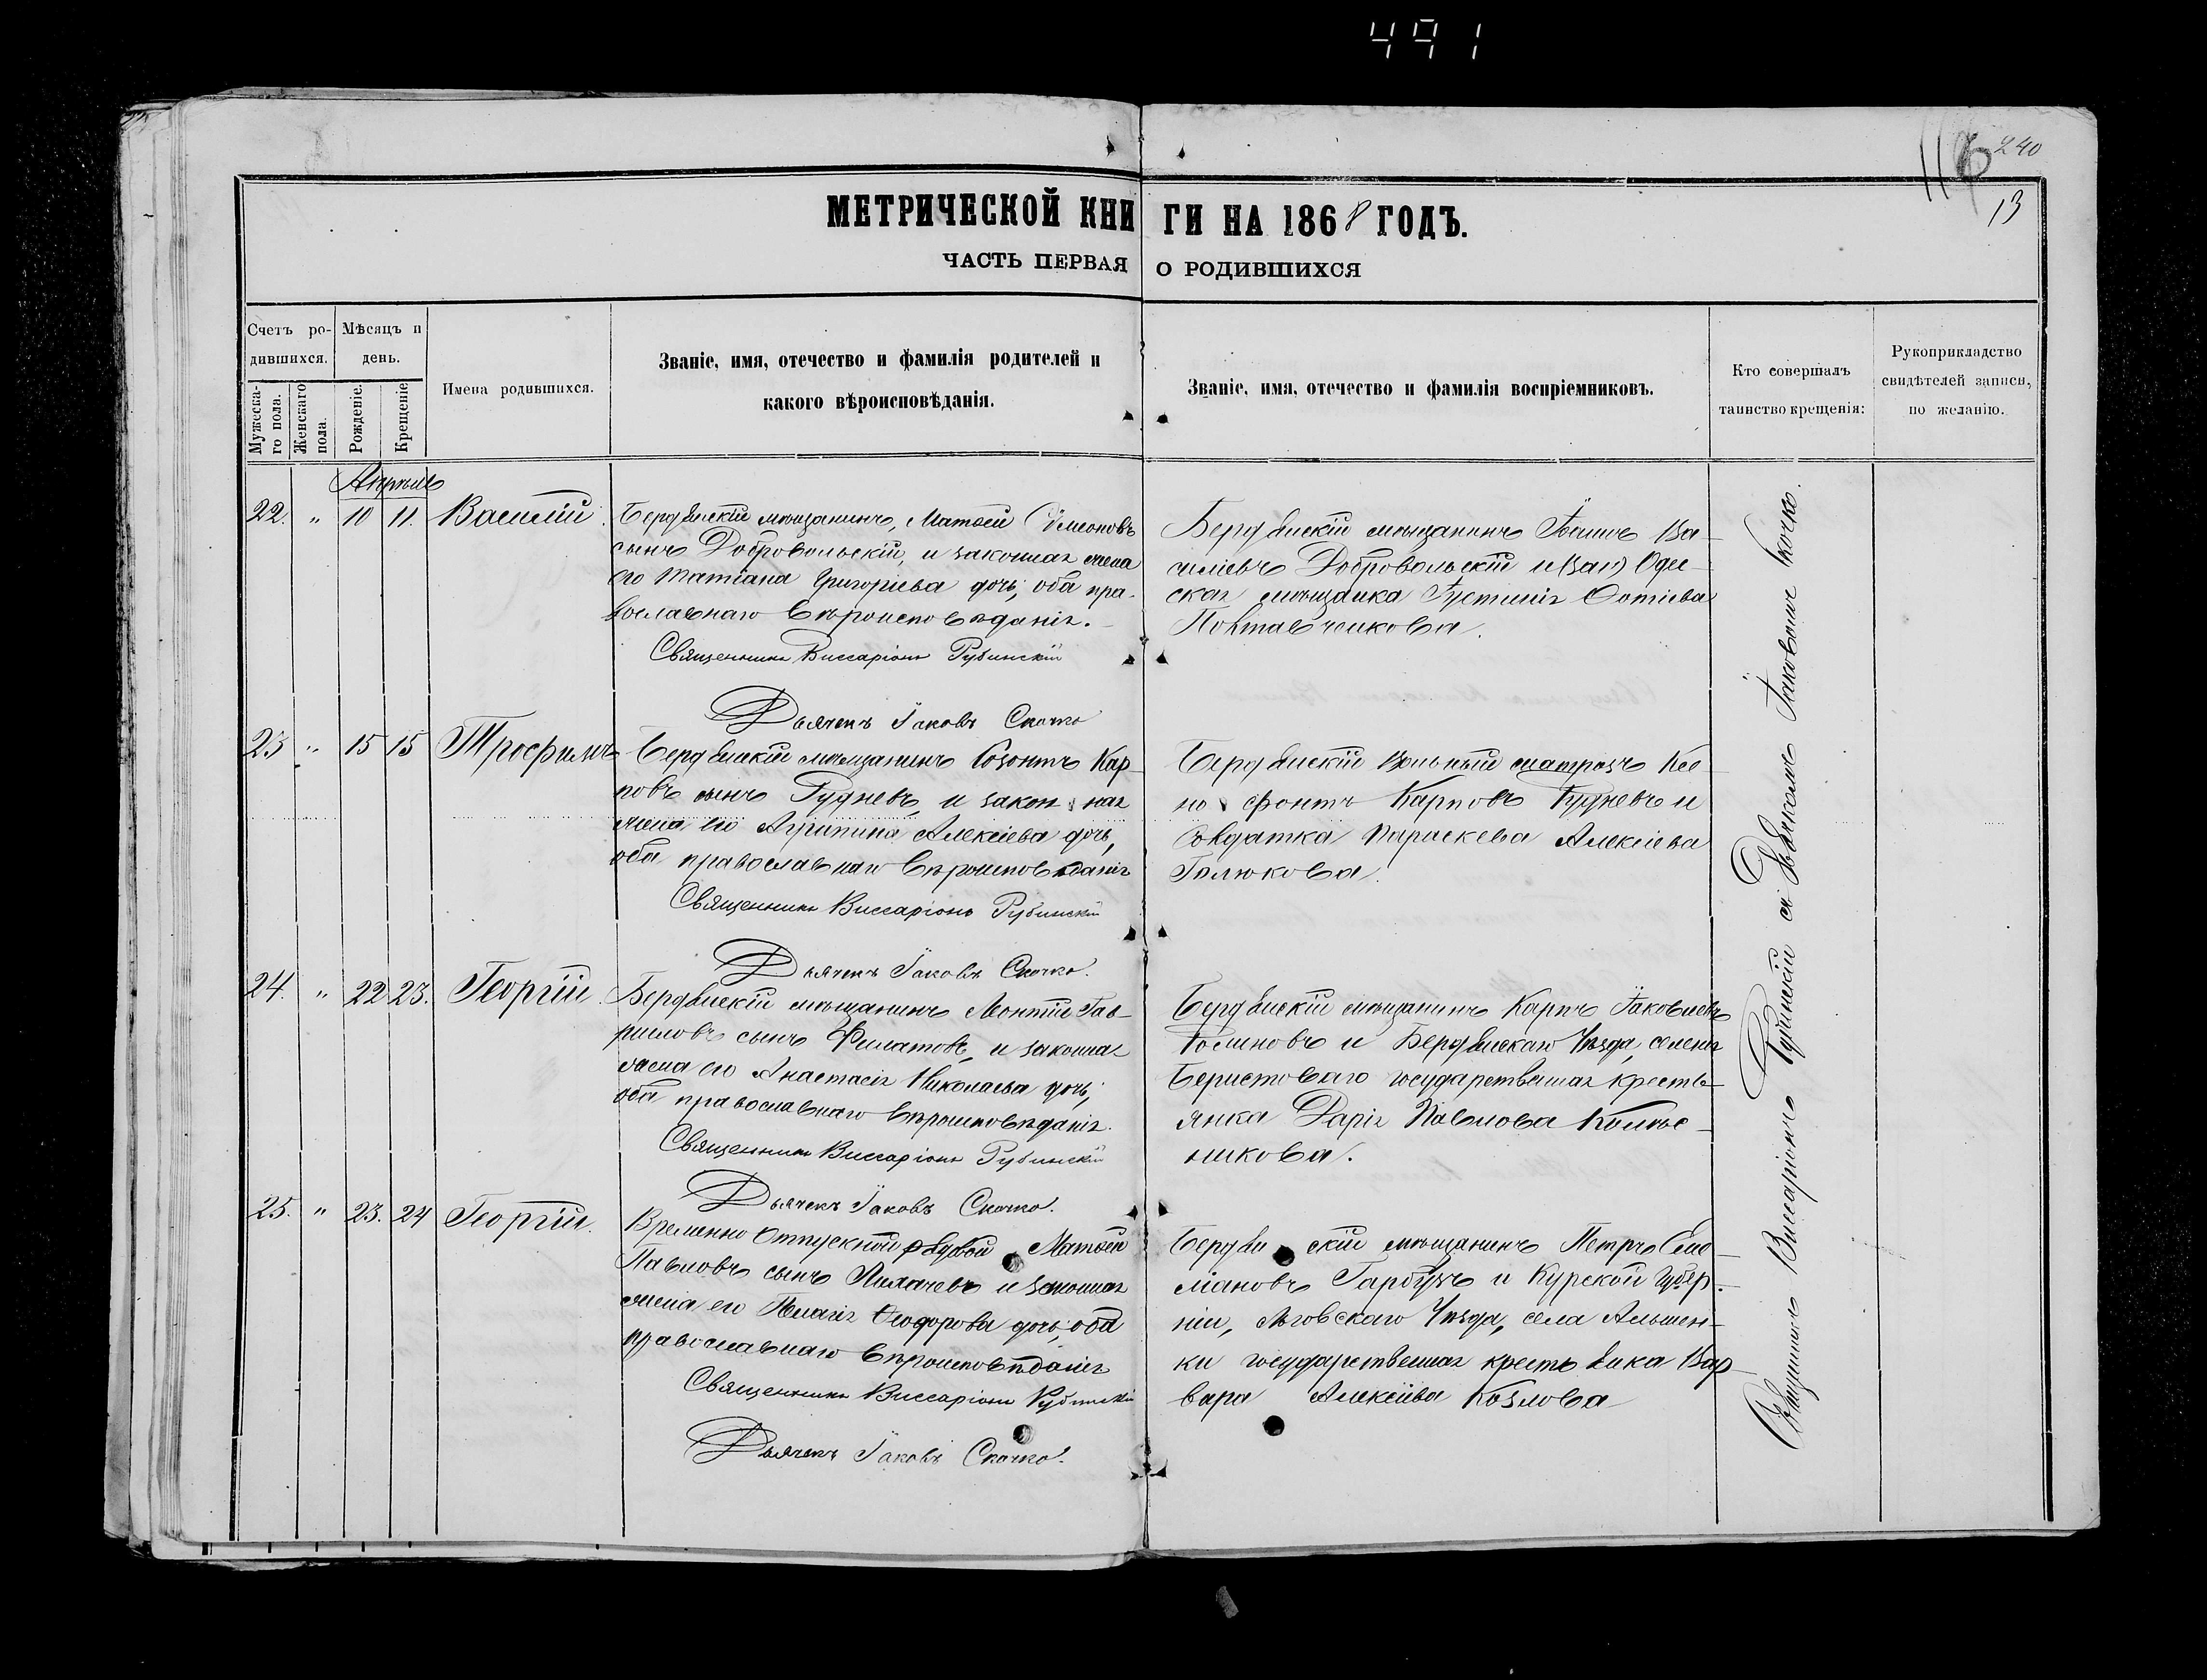 491
116 240
13
МЕТРИЧЕСКОЙ КНИГИ НА 1868 ГОДЪ.
ЧАСТЬ ПЕРВАЯ О РОДИВШИХСЯ
Счетъ ро-
дившихся.
Мужеска-
го пола.
Женскаго
пола.
Мѣсяцъ и
день.
Рожденіе.
Крещеніе.
Имена родившихся.
Званіе, имя, отечество и фамилія родителей и
какого вѣроисповѣданія.
Званіе, имя, отечество и фамилія воспріемниковъ.
Кто совершалъ
таинство крещенія:
Рукоприкладство
свидѣтелей записи,
по желанію.
Апрѣль
22. " 10 11. Василій.
Бердянскій мѣщанинъ, Матѳей Симеоновъ
сынъ Добровольскій, и законная жена
его Татіана Григоріева дочь, оба пра-
вославнаго вѣроисповѣданія.
Священникъ Виссаріонъ Рубинскій
Дьячекъ Іаковъ Скочко
Бердянскій мѣщанинъ Іоаннъ Ва-
силіевъ Добровольскій и Одес-
ская мѣщанка Іустинія Фотіева
Полтавченкова.
23 " 15 15 Трофимъ
Бердянскій мѣщанинъ Созонтъ Кар-
повъ сынъ Гудневъ, и законная
жена его Агрипина Алексіева дочь,
оба православнаго вѣроисповѣданія
Священникъ Виссаріонъ Рубинскій
Дьячекъ Іаковъ Скочко.
Бердянскій вольный матрозъ Ксе-
нофонтъ Карповъ Гудневъ и
солдатка Параскева Алексіева
Голюкова.
24. " 22 23. Георгій.
Бердянскій мѣщанинъ Леонтій Гав-
риловъ сынъ Филатовъ, и законная
жена его Анастасія Николаева дочь,
оба православнаго вѣроисповѣданія.
Священникъ Виссаріонъ Рубинскій
Дьячекъ Іаковъ Скочко.
Бердянскій мѣщанинъ Карпъ Іаковлевъ
и Бердянскаго Уѣзда, селенія
Берестоваго государственная кресть-
янка Дарія Павлова
никова.
25. " 23. 24 Георгій.
Временно отпускной рядовой Матѳей
Павловъ сынъ Лихачевъ и законная
жена его Пелагія Ѳеодорова дочь, оба
православнаго вѣроисповѣданія
Священникъ Виссаріонъ Рубинскій
Дьячекъ Іаковъ Скочко.
Бердянскій мѣщанинъ Петръ Еме-
ліановъ Гарбузъ и Курской Губер-
ніи, Льговскаго Уѣзда, села Альшен-
ки государственная крестьянка Вар-
вара Алексіева Козлова
Священникъ Виссаріонъ Рубинскій съ Дьячкомъ Іаковомъ Скочко.